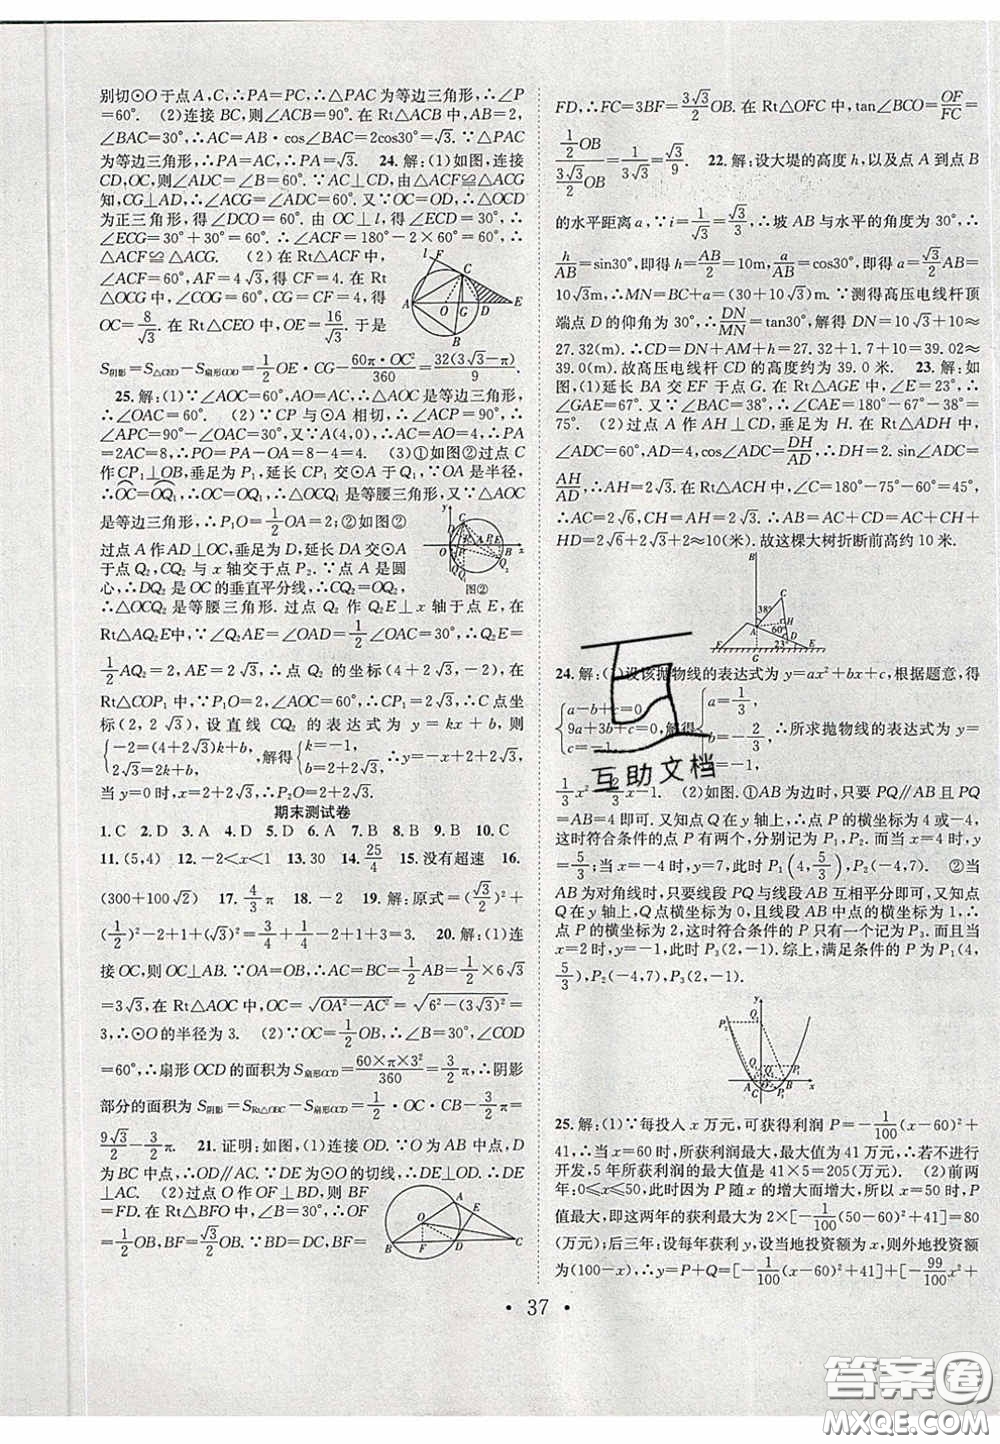 别切⊙O于点A,C,∴PA=PC,∴△PAC为等边三角形,∴∠P
=60°. (2)连接BC,则∠ACB=90°.在Rt△ACB中,AB=2,
∠BAC=30°,∴AC=AB·cos∠BAC=2cos30°=√3.∵△PAC
为等边三角形,∴PA=AC,∴PA=√3. 24.解:(1)如图,连接
CD,BC,则∠ADC=∠B=60°.∵AC⊥CD,由△ACF≌△ACG
知,CG⊥AD,∴∠ACG=∠ADC=60°.又∵OC=OD,∴△OCD
为正三角形,得∠DCO=60°.由OC⊥l,得∠ECD=30°,∴
∠ECG=30°+30°=60°.∴∠ACF=180°-2×60°=60°.∴
△ACF≌△ACG. (2)在Rt△ACF中,
∠ACF=60°,AF=4√3,得CF=4.在Rt
△OCG中,∠COG=60°,CG=CF=4,得
OC=8/√3.在Rt△CEO中,OE=16/√3.于是
S阴影=S△CEO-S扇形COD=1/2 OE·CG-60π·OC²/360=32(3√3-π)/9.
25.解:(1)∵∠AOC=60°,AO=AC,∴△AOC是等边三角形,
∴∠OAC=60°. (2)∵CP与⊙A相切,∴∠ACP=90°.
∴∠APC=90°-∠OAC=30°.又∵A(4,0),∴AC=AO=4,∴PA
=2AC=8,∴PO=PA-OA=8-4=4. (3)①如图②过点C
作CP₁⊥OB,垂足为P₁,延长CP₁交⊙A于Q₁,∵OA是半径,
∴OC=OQ₁,∴OC=OQ₁,∴△OCQ₁是等腰三角形,又∵△AOC
是等边三角形,∴P₁O=1/2 OA=2;②如图②
过点A作AD⊥OC,垂足为D,延长DA交⊙A于
Q₂,CQ₂与x轴交于点P₂.∵点A是圆
心,∴DQ₂是OC的垂直平分线,∴CQ₂=OQ₂,
∴△OCQ₂是等腰三角形.过点Q₂作Q₂E⊥x轴于点E,在
Rt△AQ₂E中,∵∠Q₂AE=∠OAD=1/2∠OAC=30°,∴Q₂E=
1/2 AQ₂=2,AE=2√3,∴点Q₂的坐标(4+2√3,-2).在
Rt△COP₁中,∵P₁O=2,∠AOC=60°,∴CP₁=2√3,∴C点坐
标(2,2√3),设直线CQ₂的表达式为y=kx+b,则
{-2=(4+2√3)k+b, 2√3=2k+b, 解得{k=-1, b=2+2√3, ∴y=-x+2+2√3.
当y=0时,x=2+2√3,∴P₂O=2+2√3.
期末测试卷
1.C 2.D 3.A 4.D 5.A 6.D 7.B 8.B 9.B 10.C
11.(5,4) 12.-2<x<1 13.30 14.25/4 15.没有超速 16.
(300+100√2) 17.4/3π 18.-2 19.解:原式=(√3/2)²+
(1/2)²-2+1+(√3)²=3/4+1/4-2+1+3=3. 20.解:(1)连
接OC,则OC⊥AB.∵OA=OB,∴AC=BC=1/2 AB=1/2×6√3
=3√3.在Rt△AOC中,OC=√(OA²-AC²)=√(6²-(3√3)²)=
3,∴⊙O的半径为3. (2)∵OC=1/2 OB,∴∠B=30°,∠COD
=60°,∴扇形OCD的面积为S扇形OCD=60×π×3²/360=3/2π,∴阴影
部分的面积为S阴影=S Rt△OBC-S扇形OCD=1/2·OC·CB-3/2π=
9√3/2-3/2π. 21.证明:如图,(1)连接OD.∵O为AB中点,D
为BC中点,∴OD∥AC.∵DE为⊙O的切线,∴DE⊥OD,∴
DE⊥AC. (2)过点O作OF⊥BD,则BF=
FD.在Rt△BFO中,∠B=30°,∴OF
=1/2 OB,BF=√3/2 OB.∵BD=DC,BF=
FD,∴FC=3BF=3√3/2 OB.在Rt△OFC中,tan∠BCO=OF/FC
=(1/2 OB)/(3√3/2 OB)=1/3√3=√3/9. 22.解:设大堤的高度h,以及点A到点B
的水平距离a,∵i=1/√3=√3/3,∴坡AB与水平的角度为30°,∴
h/AB=sin30°,即得h=AB/2=10m,a/AB=cos30°,即得a=√3/2 AB=
10√3m,∴MN=BC+a=(30+10√3)m.∵测得高压电线杆顶
端点D的仰角为30°,∴DN/MN=tan30°,解得DN=10√3+10≈
27.32(m).∴CD=DN+AM+h=27.32+1.7+10=39.02≈
39.0(m).故高压电线杆CD的高度约为39.0米. 23.解:如
图,(1)延长BA交EF于点G.在Rt△AGE中,∠E=23°,∴
∠GAE=67°.又∵∠BAC=38°,∴∠CAE=180°-67°-38°=
75°. (2)过点A作AH⊥CD,垂足为H.在Rt△ADH中,
∠ADC=60°,AD=4,cos∠ADC=DH/AD,∴DH=2.sin∠ADC=
AH/AD,∴AH=2√3.在Rt△ACH中,∠C=180°-75°-60°=45°,
∴AC=2√6,CH=AH=2√3.∴AB=AC+CD=AC+CH+
HD=2√6+2√3+2≈10(米).故这棵大树折断前高约10米.
24.解:(1)设该抛物线的表达式为y=ax²+bx+c,根据题意,得
{a-b+c=0, 9a+3b+c=0, c=-1, 解得{a=1/3, b=-2/3, c=-1, ∴所求抛物线的表达式为y=
1/3x²-2/3x-1. (2)如图.①AB为边时,只要PQ∥AB且PQ=
AB=4即可.又知点Q在y轴上,∴点P的横坐标为4或-4,
这时符合条件的点P有两个,分别记为P₁,P₂.而当x=4时,y
=5/3;当x=-4时,y=7,此时P₁(4,5/3),P₂(-4,7). ②当
AB为对角线时,只要线段PQ与线段AB互相平分即可,又知点
Q在y轴上,Q点横坐标为0,且线段AB中点的横坐标为1,∴
点P的横坐标为2,这时符合条件的P只有一个记为P₃.而且当
x=2时,y=-1,此时P₃(2,-1).综上,满足条件的P为P₁(4,
5/3),P₂(-4,7),P₃(2,-1).
25.解:(1)∵每投入x万元,可获得利润P=-1/100(x-60)²+
41,∴当x=60时,所获利润最大,最大值为41万元,∴若不进行
开发,5年所获利润的最大值是41×5=205(万元). (2)前两
年:0≤x≤50,此时因为P随x的增大而增大,所以x=50时,P
值最大,即这两年的获利最大为2×[-1/100(50-60)²+41]=80
(万元);后三年:设每年获利y,设当地投资额为x,则外地投资额
为(100-x),∴y=P+Q=[-1/100(x-60)²+41]+[-99/100x²+
图②
38°
60°
23°
• 37 •
互助文档
答案圈
MXQE.COM